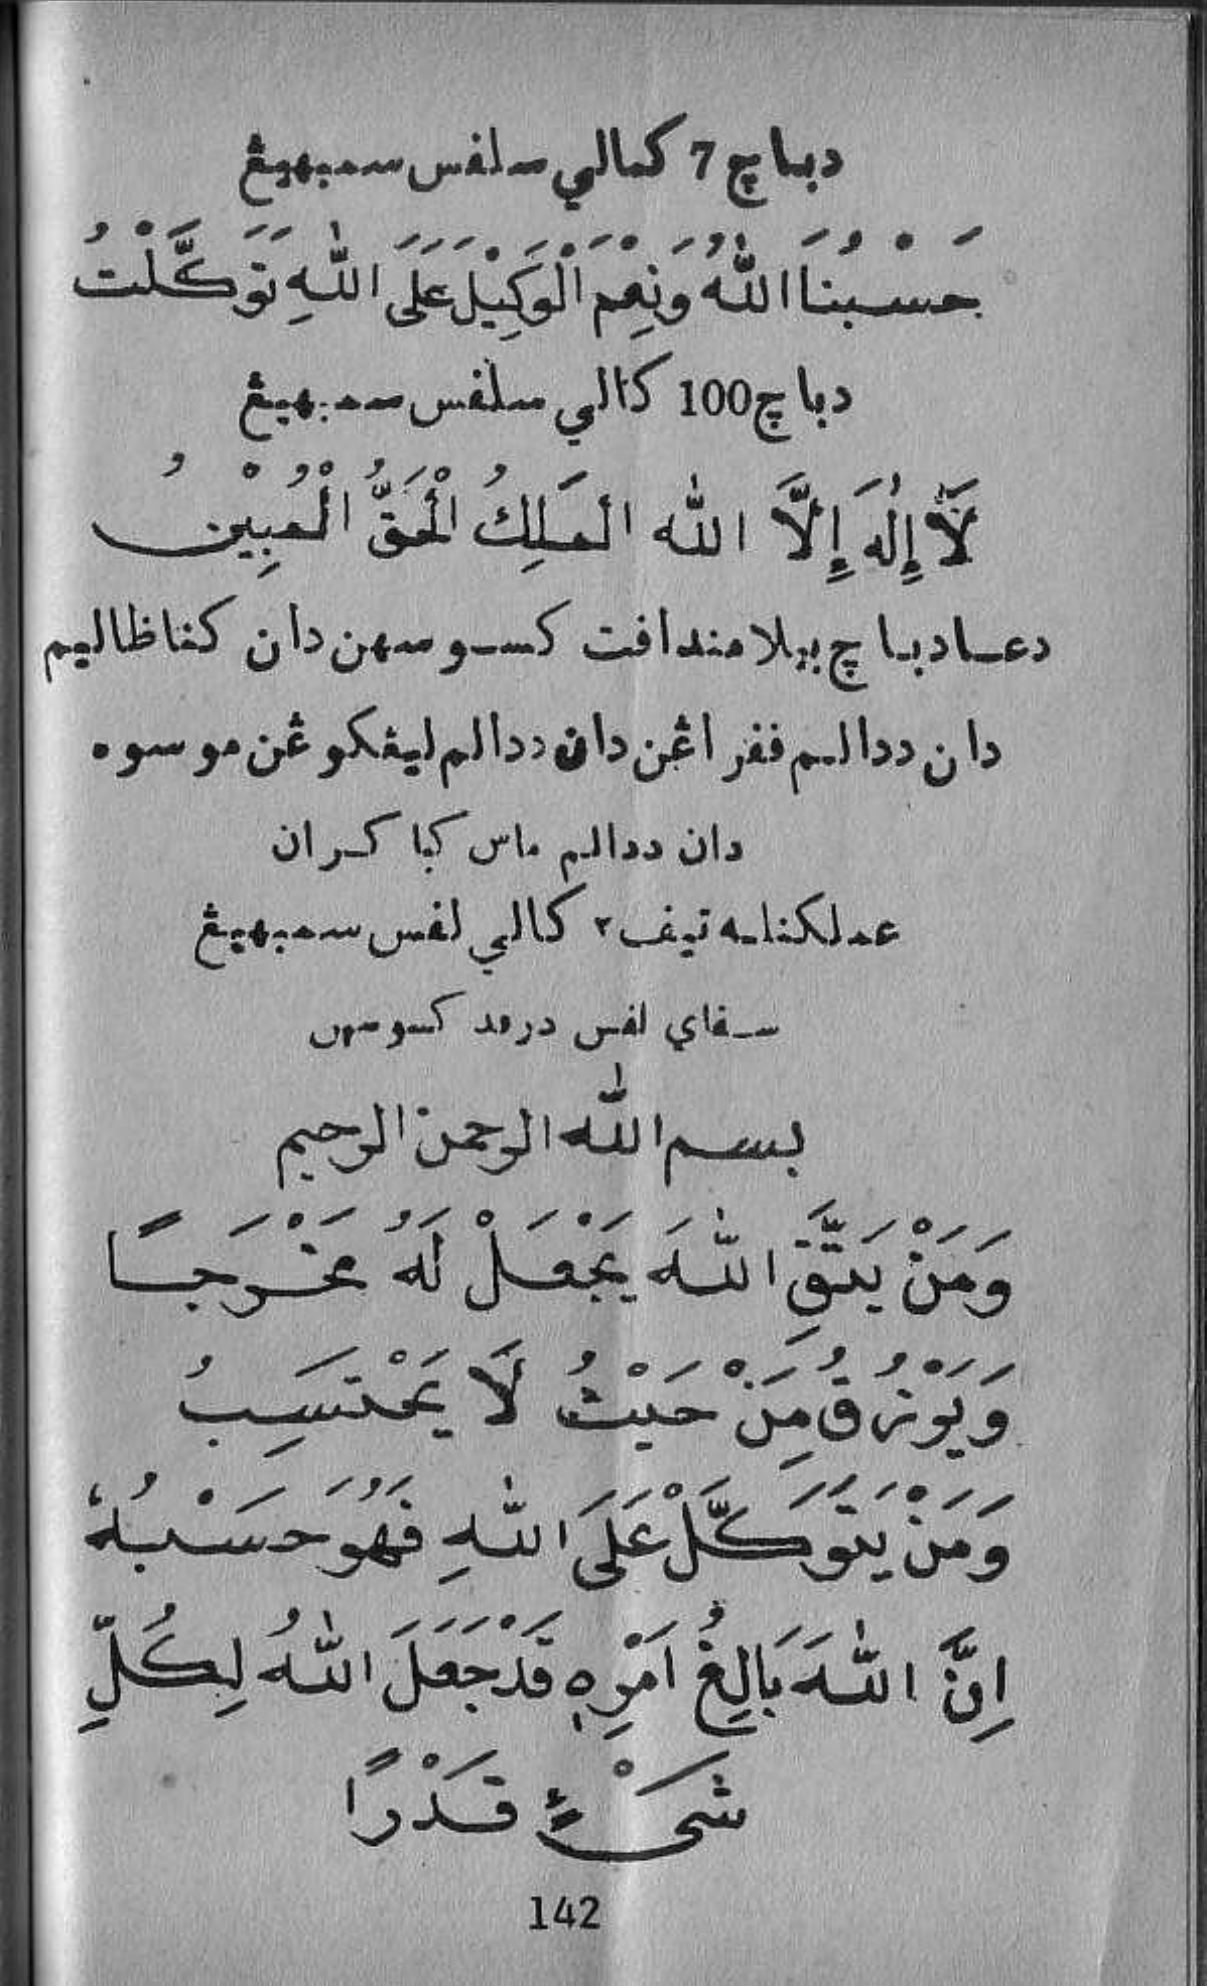 دباچ 7 كمالي سلفس سمبهيڠ
حَسْبُنَا اللهُ وَنِعْمَ الْوَكِيْلَ عَلَى اللهِ تَوَكَّلْتُ
دباچ 100 كالي سلفس سمبهيڠ
لَآ إِلٰهَ إِلَّا الله الْمَلِكُ الْحَقُّ الْمُبِيْنُ
دعا دباچ بيلا مندافت كسوسهن دان كناظاليم
دان ددالم ففراڠن دان ددالم ليڤكوڠن موسوه
دان ددالم ماس كباكران
عملكنله تيف٢ كالي لفس سمبهيڠ
سفاي لفس درفد كسوسهن
بسم الله الرحمن الرحيم
وَمَنْ يَتَّقِ اللهَ يَجْعَلْ لَهُ مَخْرَجًا
وَيَرْزُقُ مِنْ حَيْثُ لَا يَحْتَسِبُ
وَمَنْ يَتَوَكَّلْ عَلَى اللهِ فَهُوَ حَسْبُهُ
اِنَّ اللهَ بَالِغُ اَمْرِهِ قَدْ جَعَلَ اللهُ لِكُلِّ
شَىْءٍ قَدْرًا
142